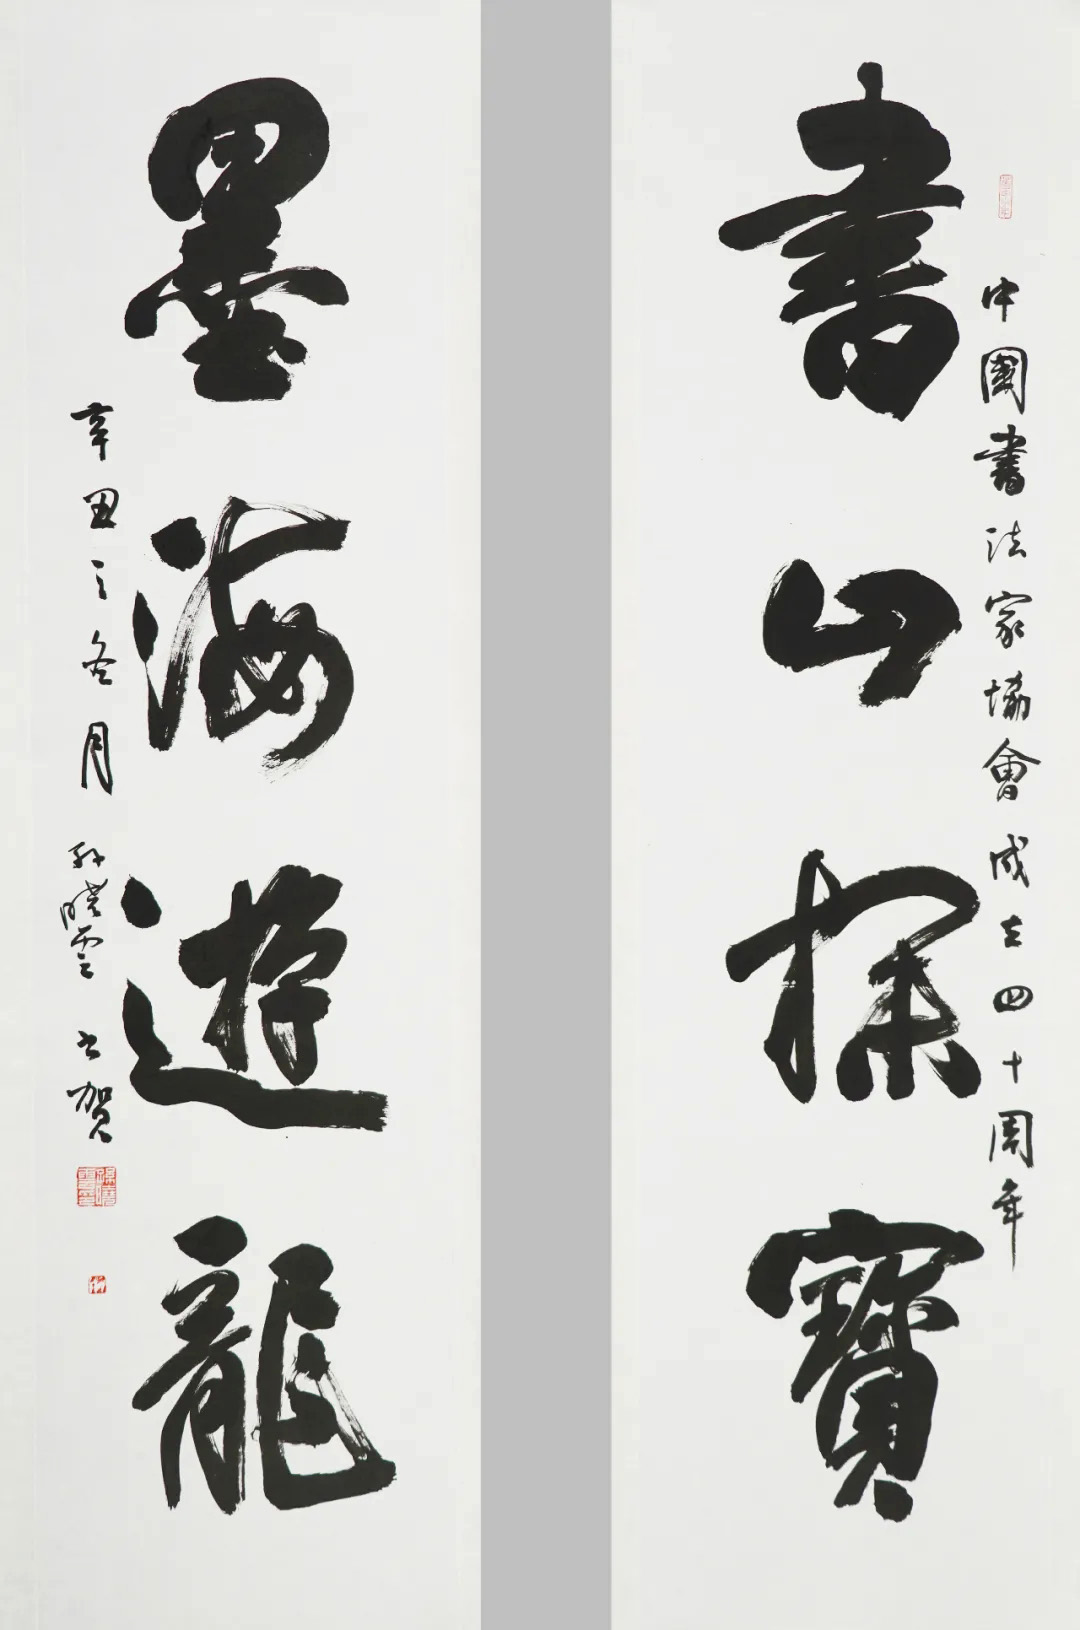 書山探寶
中國書法家協會成立四十周年
墨海遊龍
辛丑之冬月
孫曉雲書賀